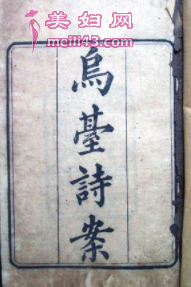 美妇网
www.meili43.com
烏臺詩案